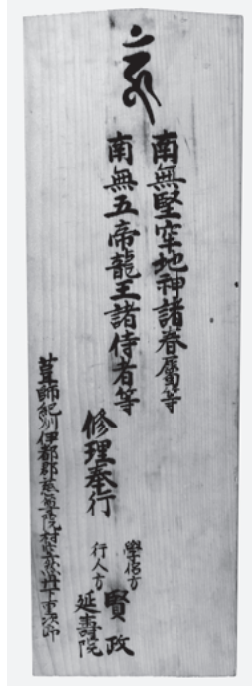 南無堅牢地神諸眷屬等
南無五帝龍王諸侍者等
修理奉行
學侶方 賢政
行人方 延壽院
葺師紀州伊都郡慈尊院村 丹下 次郎